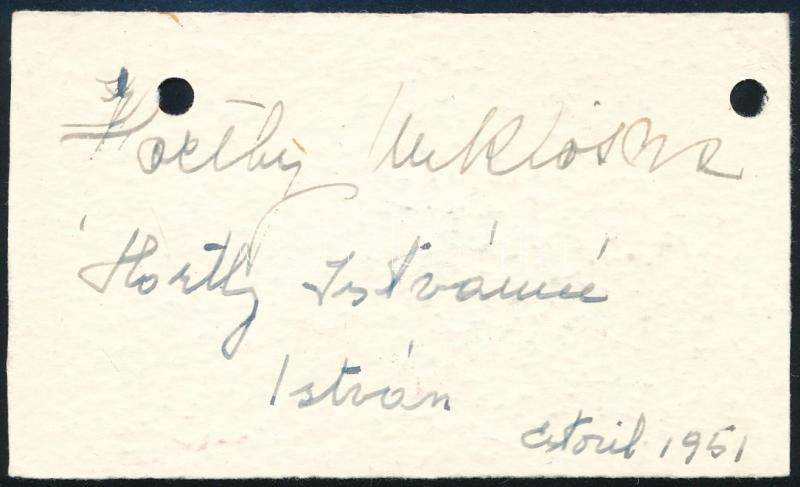 Horthy Miklósné
Horthy Istvánné
István
Estoril 1951